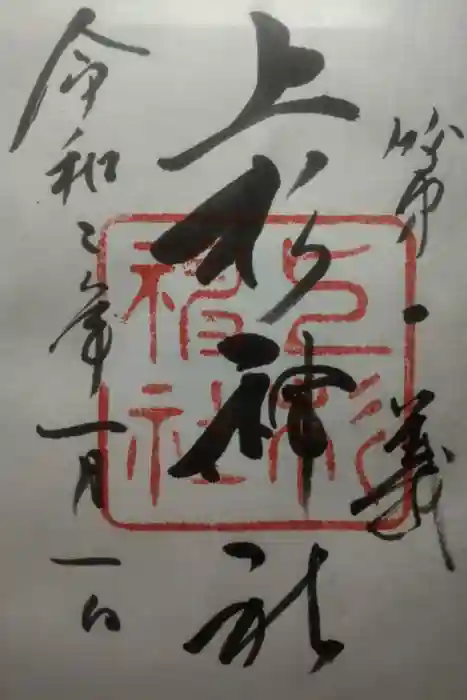 第一義
上杉神社
上杉神社
令和二年一月一日